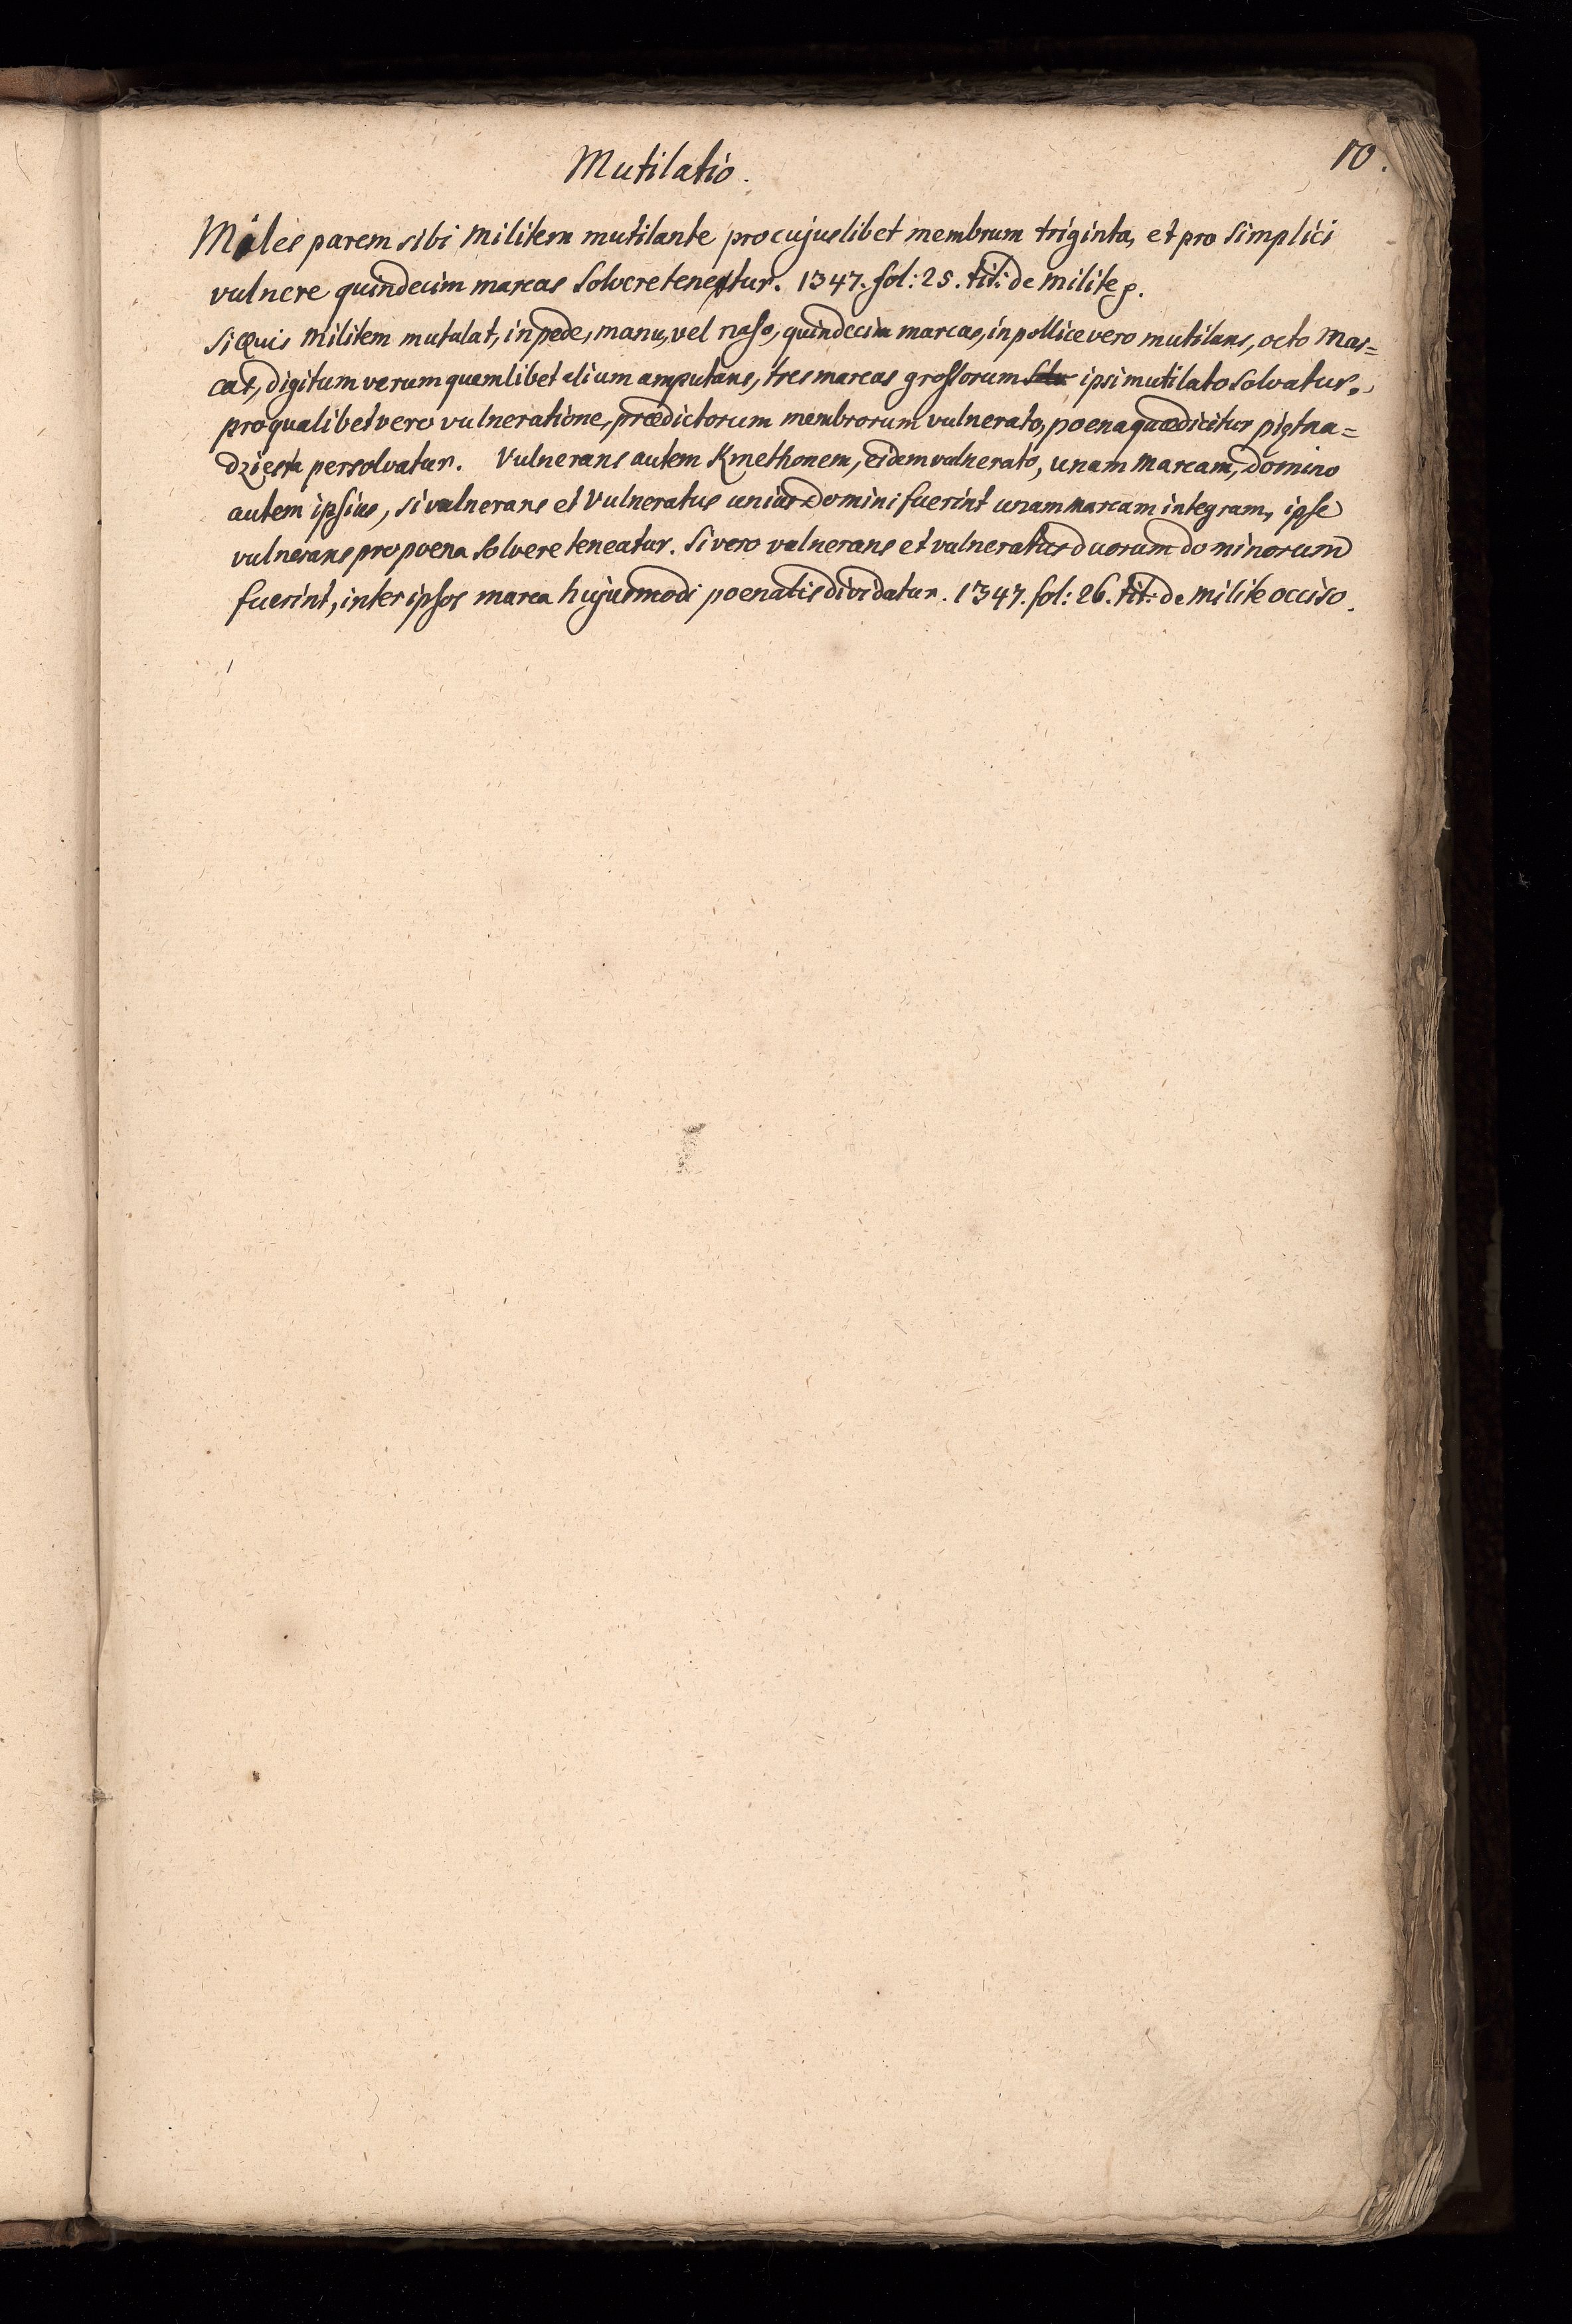 Mutilatio.
10.
Miles parem sibi Militem mutilante pro cujuslibet membrum triginta, et pro Simplici
vulnere quindecim marcas Solvere tenetur. 1347. fol: 25. tit: de Milite p.
Si Quis Militem mutalat, in pede, manu, vel naso, quindecim marcas, in pollice vero mutilans, octo Mar=
cas, digitum verum quemlibet alium amputans, tres marcas grossorum ipsi mutilato solvatur.
pro qualibet vero vulneratione, prædictorum membrorum vulnerato, poena quædicitur piętna=
dziesta persolvatur. Vulnerans autem Kmethonem, eidem vulnerato, unam Marcam, domino
autem ipsius, si vulnerans et Vulneratus unius Domini fuerint unam marcam integram, ipse
vulnerans pro poena Solvere teneatur. Si vero vulnerans et vulneratus duorum dominorum
fuerint, inter ipsos marca hujusmodi poenalis dividatur. 1347. fol: 26. tit: de Milite occiso.